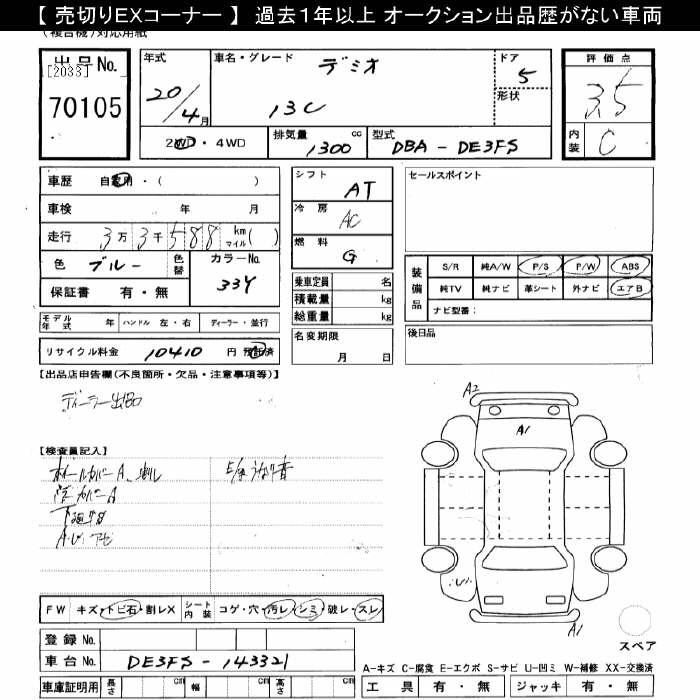 【 売切りEXコーナー 】 過去1年以上 オークション出品歴がない車両
(複合機)対応用紙
出品 No.
[2033]
70105
年式
20/4月
車名・グレード
デミオ
13C
ドア
5
形状
評価点
3.5
内装
C
2WD・4WD
排気量
1300 cc
型式
DBA - DE3FS
車歴 自家用・( )
車検 年 月
走行 3万3千588 km マイル( )
色 ブルー 色替 カラーNo. 33Y
保証書 有・無
シフト AT
冷房 AC
燃料 G
乗車定員 名
積載量 kg
総重量 kg
名変期限 月 日
セールスポイント
装備品
S/R 純A/W P/S P/W ABS
純TV 純ナビ 革シート 外ナビ エアB
ナビ型番:
後日品
モデル年式 年 ハンドル 左・右 ディーラー・並行
リサイクル料金 10410 円 預託済
【出品店申告欄(不良箇所・欠品・注意事項等)】
ディーラー出品
【検査員記入】
ホイールカバーA、割レ
A2
A1
A1
FW キズ・トビ石・割レX シート内装 コゲ・穴・汚レ・シミ・破レ・スレ
登録 No.
車台 No. DE3FS - 143321
スペア
A-キズ C-腐食 E-エクボ S-サビ U-凹ミ W-補修 XX-交換済
車庫証明用 長さ cm 幅 cm 高さ cm
工具 有・無 ジャッキ 有・無